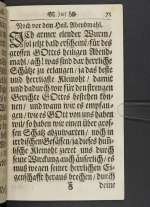 75
Noch vor dem Heil. Abendmahl.
ICh armer elender Wurm/
sol jetzt bald erscheinē/ für des
grossen GOttes heiligen Abend-
mahl/ ach! was sind dar herrliche
Schätze zu erlangen/ ja das beste
und herrlichste Kleinod/ damit
und dadurch wir für den strengen
Gerichte GOttes bestehen kön-
nen/ und wann wir es empfan-
gen/ wie es GOtt von uns haben
wil/ so haben wir einen über gros-
sen Schatz abzuwarten/ noch in
irrdischen Gefässen/ ja dieses himm-
lische Kleinod zieret uns durch
seine Würckung auch äusserlich/ es
muß wegen seiner herrlichen Ei-
genschafft heraus brechen/ durch
deine